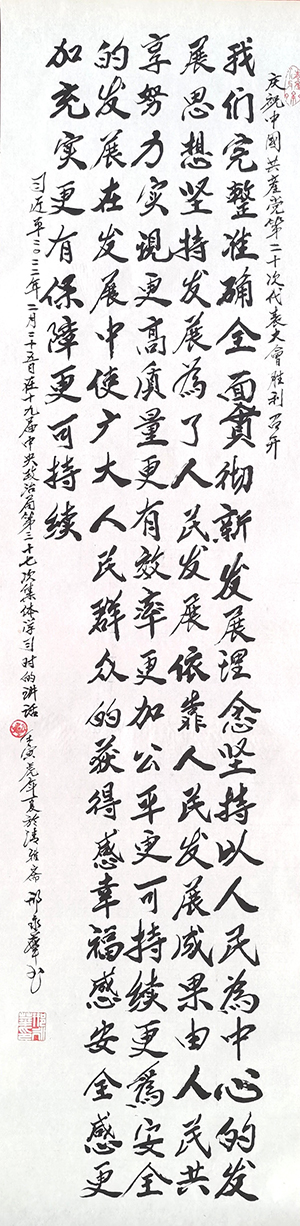 庆祝中國共產党第二十次代表大會胜利召开
我们完整准确全面贯彻新发展理念坚持以人民為中心的发
展思想坚持发展為了人民发展依靠人民发展成果由人民共
享努力实現更高质量更有效率更加公平更可持续更為安全
的发展在发展中使广大人民群众的获得感幸福感安全感更
加充实更有保障更可持续
习近平二〇二二年二月二十五日在十九届中央政治局第三十七次集体学习时的讲话
壬寅虎年夏於清雅斋 邢永峰书